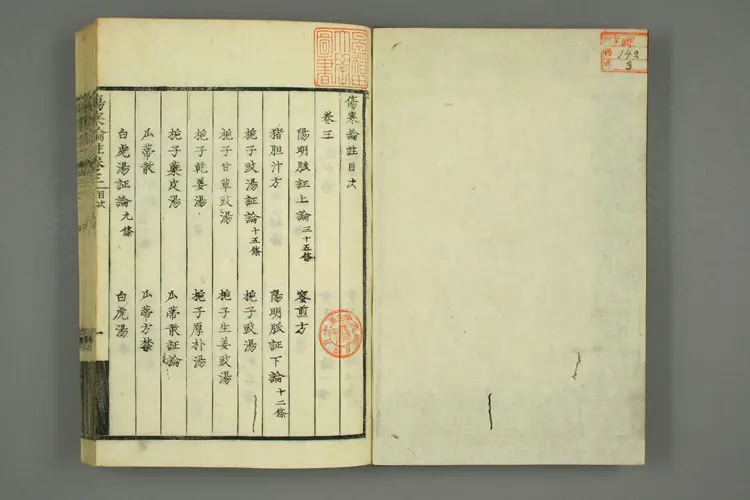 傷寒論註目次
卷三
陽明脈証上論三十五條 蜜煎方
猪胆汁方 陽明脈証下論十二條
梔子豉湯証論十五條 梔子豉湯
梔子甘草豉湯 梔子生姜豉湯
梔子乾姜湯 梔子厚朴湯
梔子蘗皮湯 瓜蒂散証論
瓜蒂散 瓜蒂方禁
白虎湯証論九條 白虎湯
傷寒論註卷三 目次 一
142
3